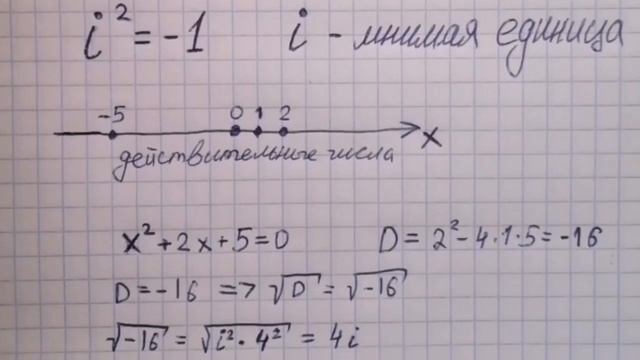 i² = -1 i - мнимая единица
-5 0 1 2
x
действительные числа
x² + 2x + 5 = 0 D = 2² - 4·1·5 = -16
D = -16 => √D = √-16
√-16 = √i²·4² = 4i